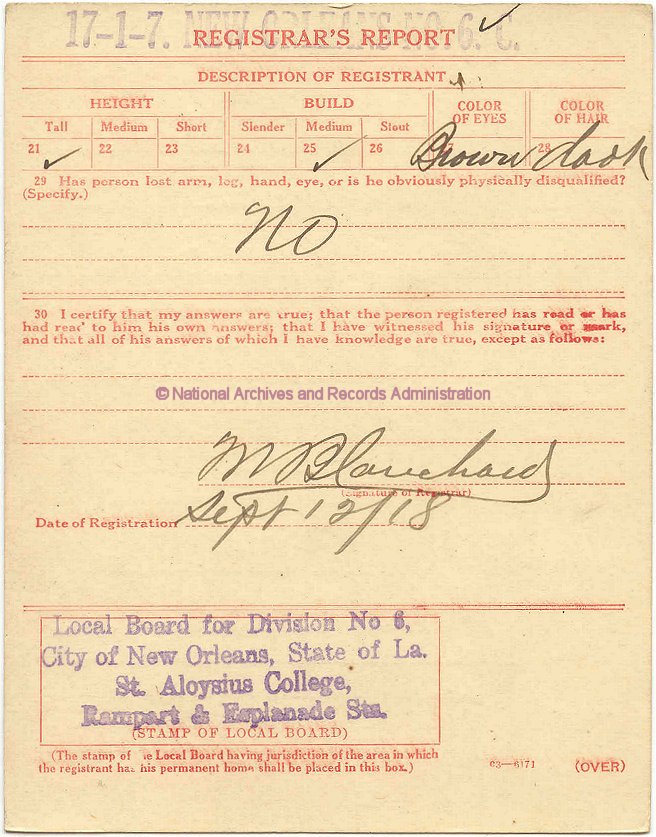 17-1-7. NEW ORLEANS NO 6. C. ✓
REGISTRAR'S REPORT
DESCRIPTION OF REGISTRANT
HEIGHT BUILD COLOR OF EYES COLOR OF HAIR
Tall Medium Short Slender Medium Stout
21 ✓ 22 23 24 25 ✓ 26 27 Brown 28
29 Has person lost arm, leg, hand, eye, or is he obviously physically disqualified?
(Specify.)
No
30 I certify that my answers are true; that the person registered has read or has
had read to him his own answers; that I have witnessed his signature or mark,
and that all of his answers of which I have knowledge are true, except as follows:
© National Archives and Records Administration
M Blanchard
(Signature of Registrar)
Date of Registration Sept 12/18
Local Board for Division No 6,
City of New Orleans, State of La.
St. Aloysius College,
Rampart & Esplanade Sts.
(STAMP OF LOCAL BOARD)
(The stamp of the Local Board having jurisdiction of the area in which
the registrant has his permanent home shall be placed in this box.)
03—6171 (OVER)